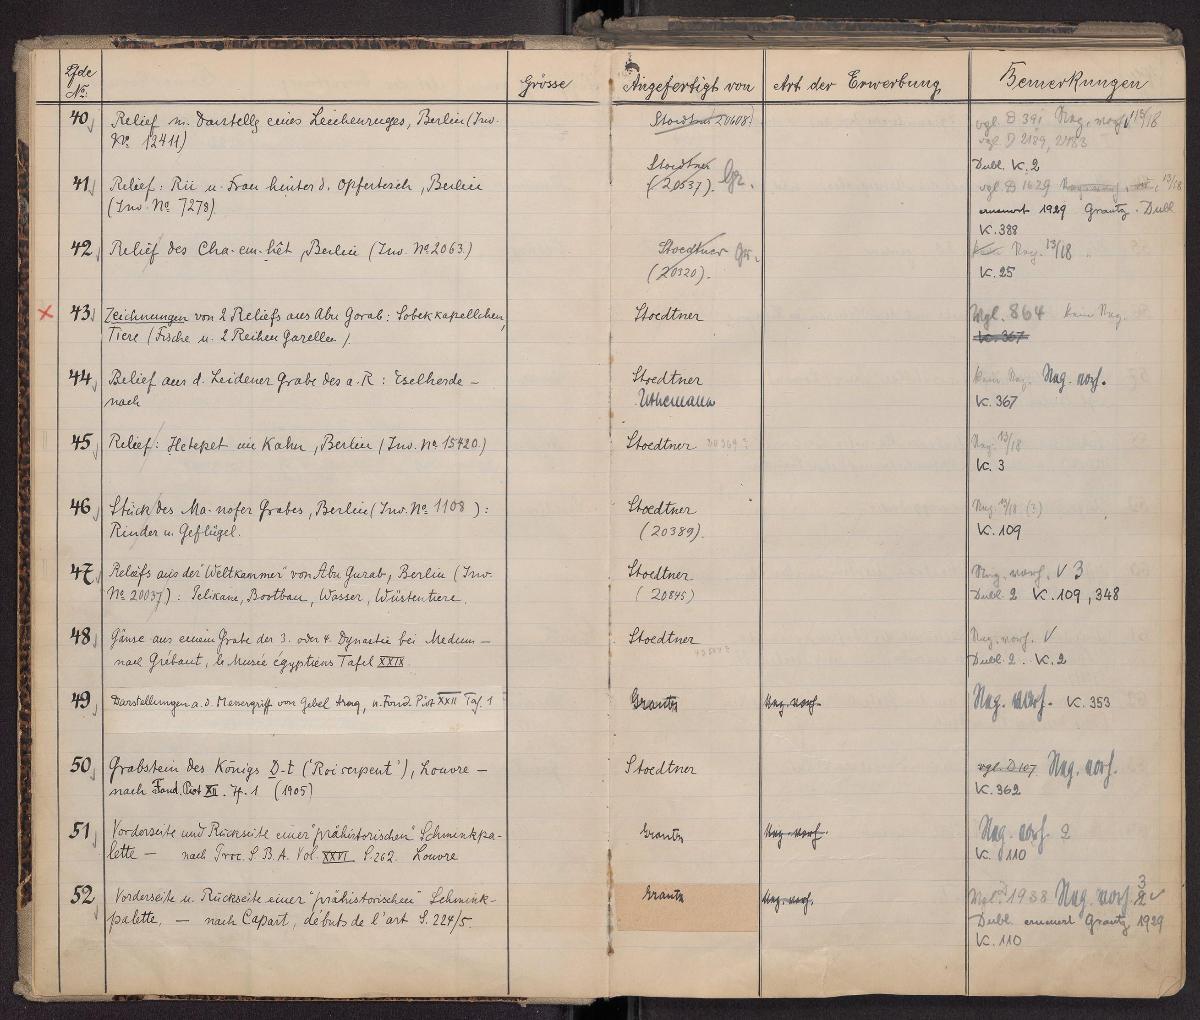 Lfde Nº. Grösse Angefertigt von Art der Erwerbung Bemerkungen
40 Relief m. Darstellg eines Leichenzuges, Berlin (Inv. Stoedtner 20608) vgl. D 391 Neg. vorh. 13/18
Nº 12411) vgl. D 2189, 2183
Dubl. K. 2
41 Relief: Rii u. Frau hinter d. Opfertisch, Berlin Stoedtner Gr. vgl. D 1629 13/18
(Inv. Nº 7278) (20537). erneuert 1929 Grantz. Dubl
K. 388
42 Relief des Cha-em-hêt, Berlin (Inv. Nº 2063.) Stoedtner Gr. kein Neg. 13/18
(20320). K. 25
43 Zeichnungen von 2 Reliefs aus Abu Gorab: Sobekkapellchen, Stoedtner Vgl. 864 kein Neg.
Tiere (Fische u. 2 Reihen Gazellen). K. 367
44 Relief aus d. Leidener Grabe des a. R: Eselherde – Stoedtner kein Neg. Neg. vorh.
nach Uthemann K. 367
45 Relief: Hetepet im Kahn, Berlin (Inv. Nº 15420.) Stoedtner Neg. 13/18
K. 3
46 Stück des Ma-nofer Grabes, Berlin (Inv. Nº 1108): Stoedtner Neg. 13/18 (3)
Rinder u. Geflügel. (20389). K. 109
47 Reliefs aus der "Weltkammer" von Abu Gurab, Berlin (Inv. Stoedtner Neg. vorh. V 3
Nº 20037): Pelikane, Bootbau, Wasser, Wüstentiere. (20845) Dubl. 2 K. 109, 348
48 Gänse aus einem Grabe der 3. oder 4. Dynastie bei Medum – Stoedtner Neg. vorh. V
nach Grébaut, le Musée égyptiens Tafel XXIX. Dubl. 2. K. 2
49 Darstellungen a. d. Messergriff von Gebel Araq, n. Fond. Piot XXII Taf. 1 Grantz Neg. vorh. Neg. vorh. K. 353
50 Grabstein des Königs D-t ('Roi serpent'), Louvre – Stoedtner vgl. D 107 Neg. vorh.
nach Fond. Piot XII. H. 1 (1905) K. 362
51 Vorderseite und Rückseite einer "prähistorischen" Schminkpa- Grantz Neg. vorh. Neg. vorh. 2
lette – nach Proc. S. B. A. Vol. XXVI S. 262. Louvre K. 110
52 Vorderseite u. Rückseite einer "prähistorischen" Schmink- Grantz Neg. vorh. Vgl. D 1988 Neg. vorh. 3 2
palette, – nach Capart, débuts de l'art S. 224/5. Dubl. erneuert Grantz 1929
K. 110